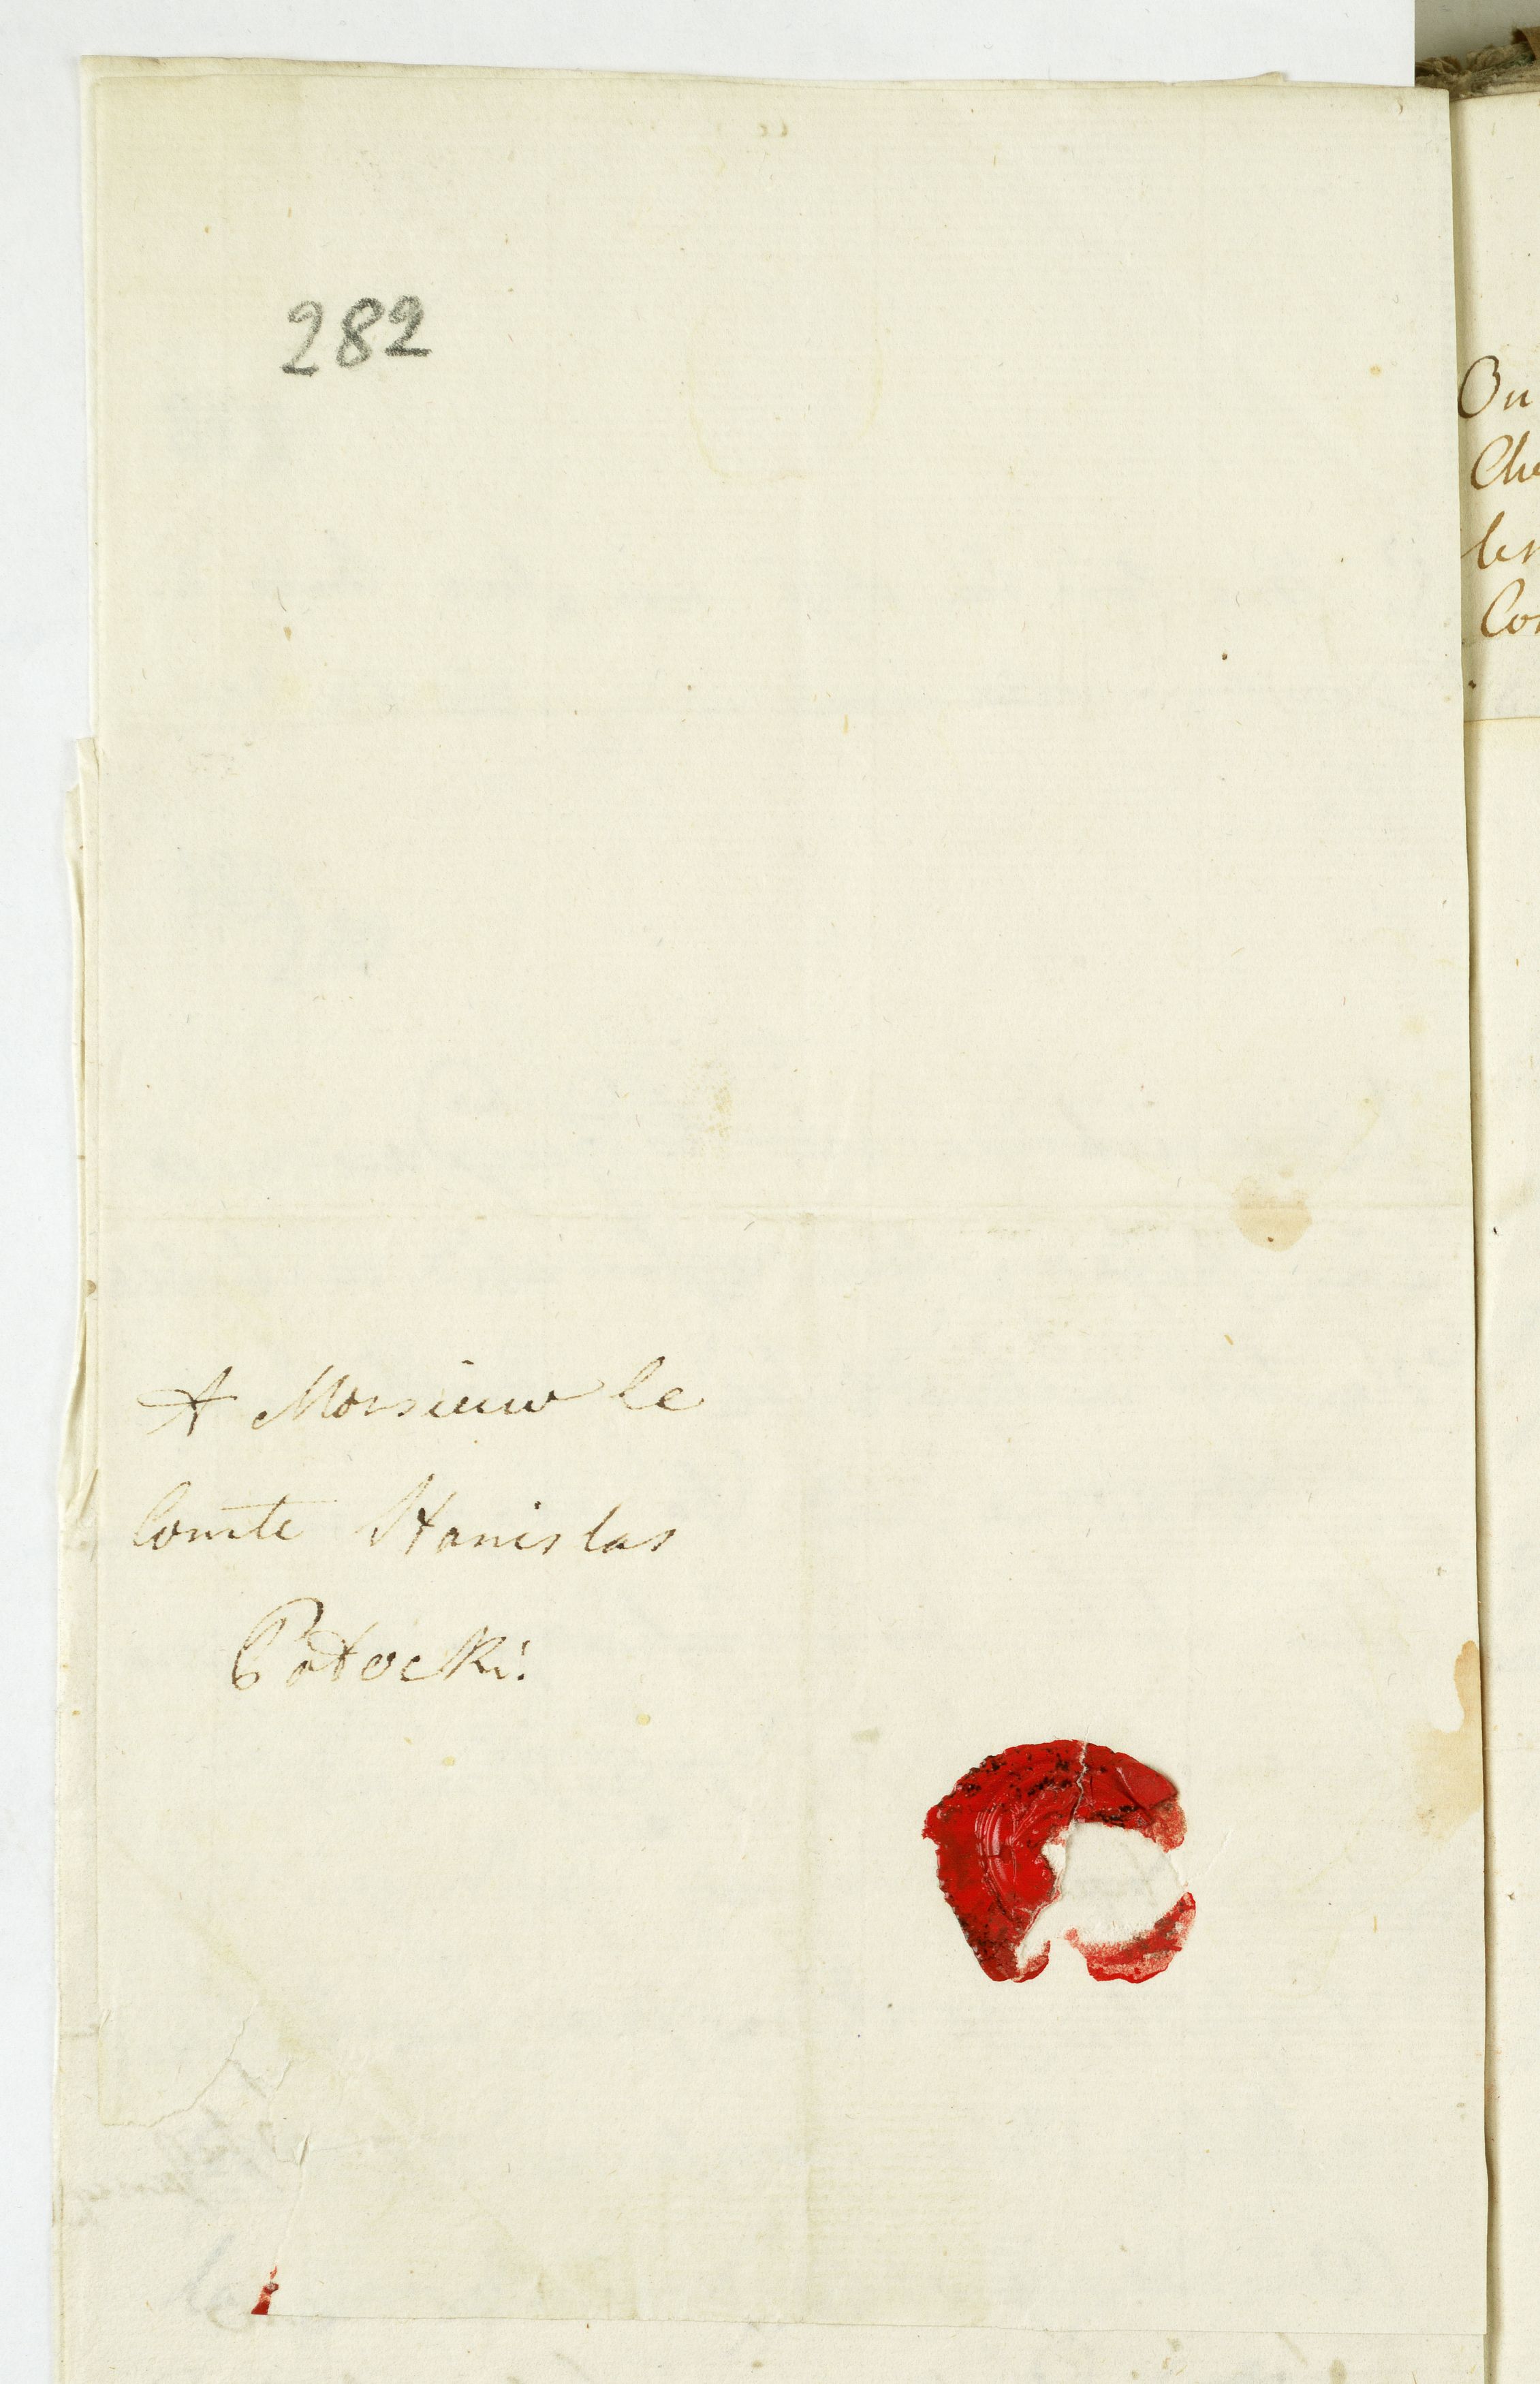 282
A Monsieur le
Comte Stanislas
Potocki.
On
Che
les
Con